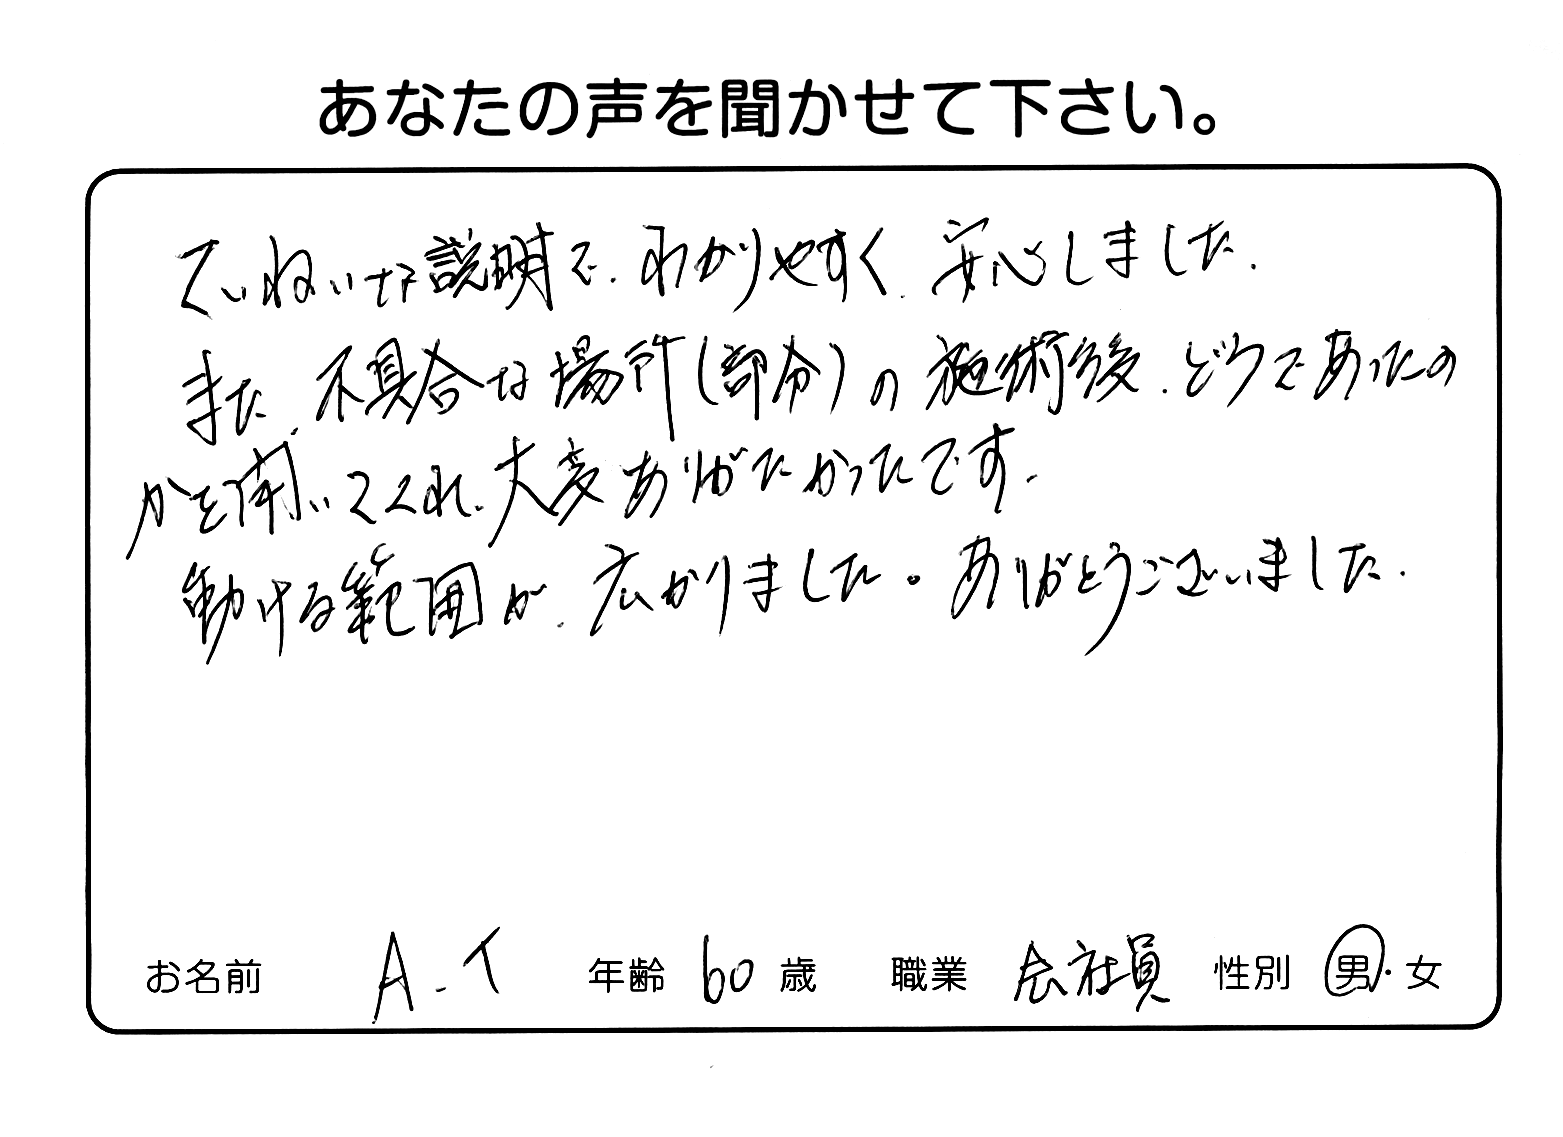 あなたの声を聞かせて下さい。
ていねいな説明で、わかりやすく、安心しました。
また、不具合な場所(部分)の施術後、どうであったの
かを聞いてくれ、大変ありがたかったです。
動ける範囲が、広がりました。ありがとうございました。
お名前 A.T 年齢 60 歳 職業 会社員 性別 男・女